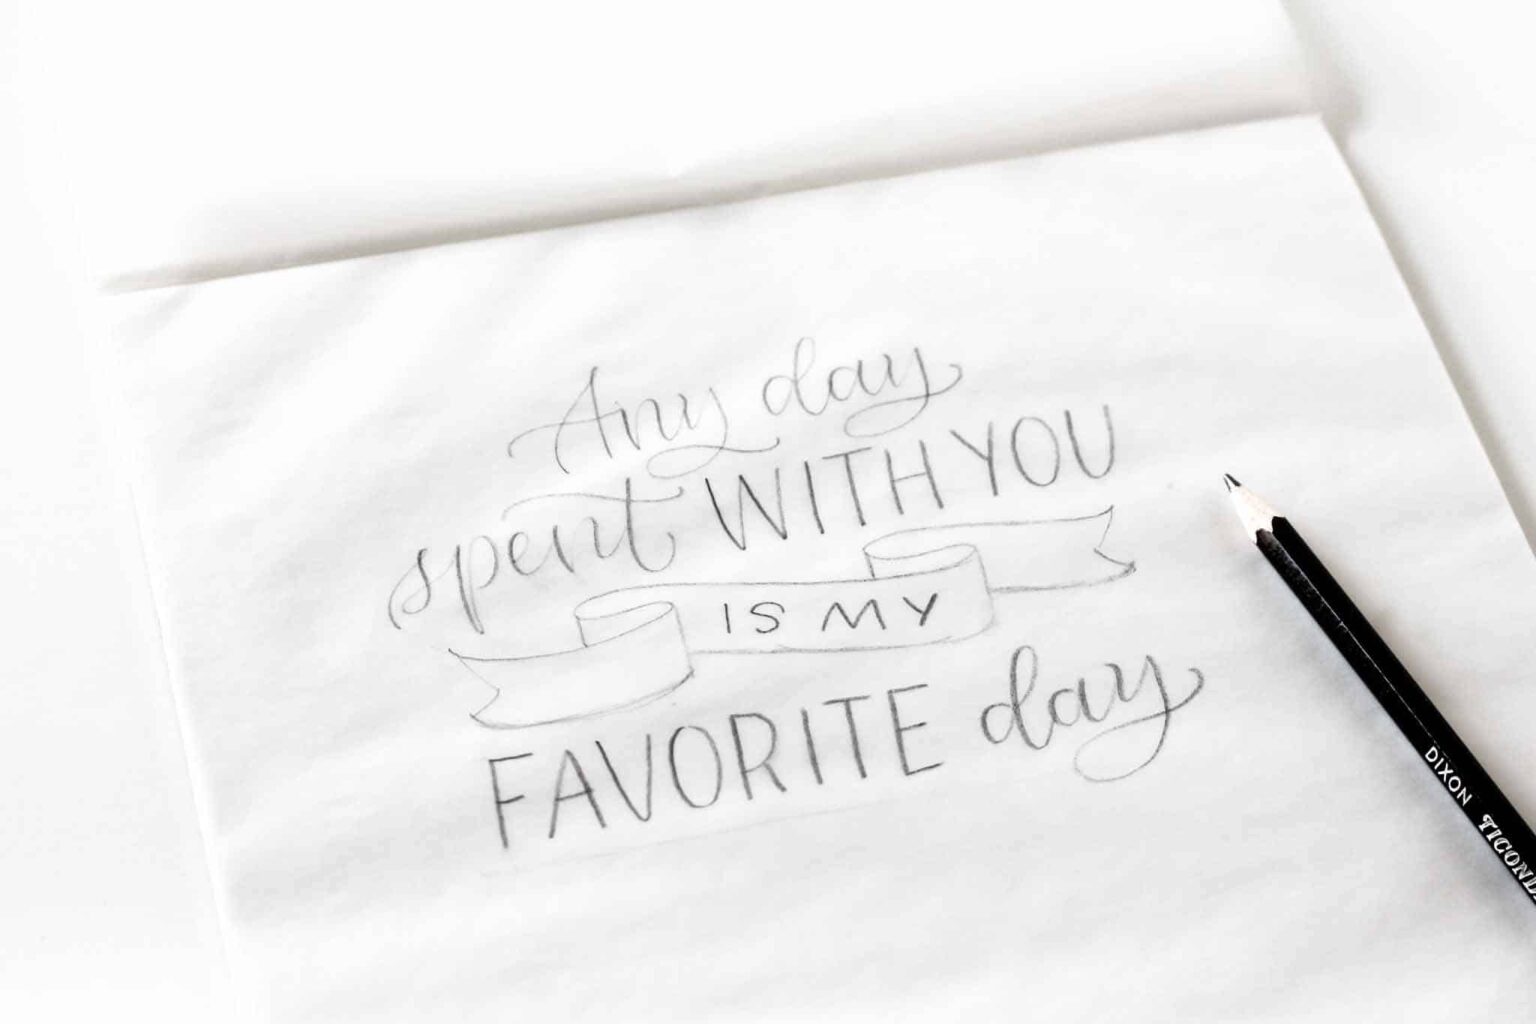 Any day
spent WITH YOU
IS MY
FAVORITE day
DIXON